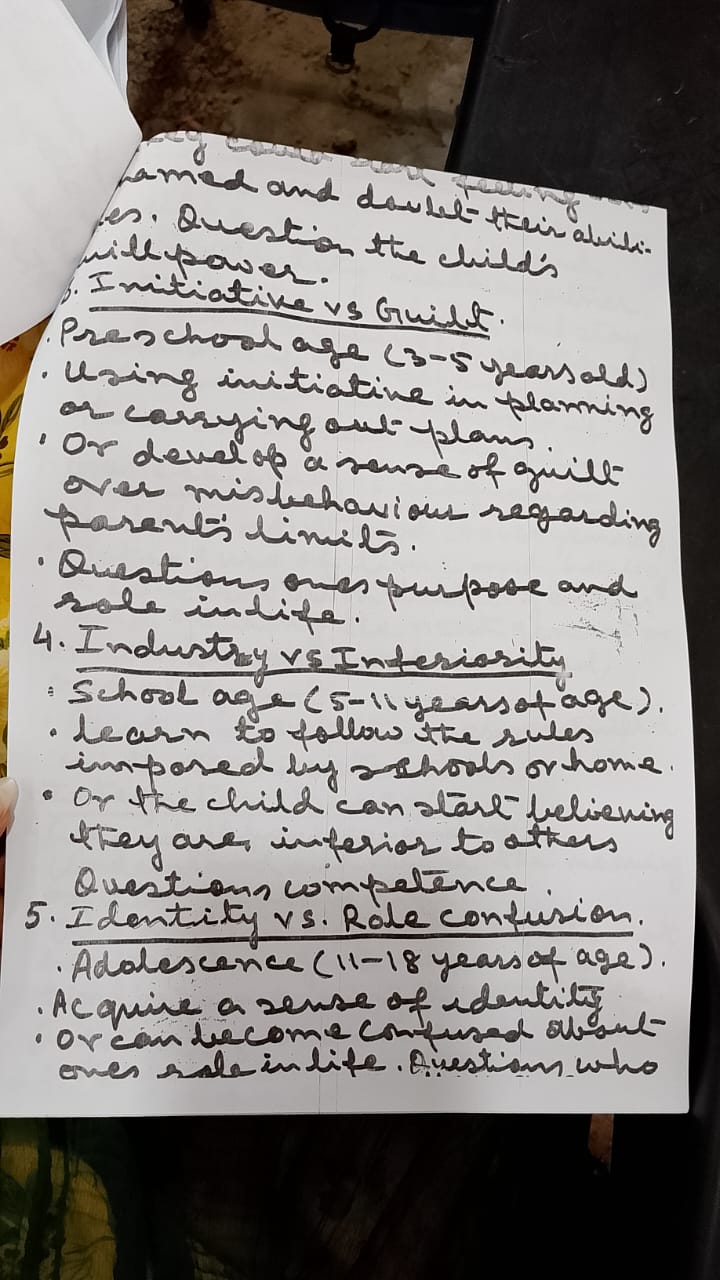 feeling
and doubt their abili-
es. Question the child's
will power.
3. Initiative vs Guilt.
. Preschool age (3-5 years old)
. Using initiative in planning
or carrying out plans.
. Or develop a sense of guilt
over misbehaviour regarding
parent's limits.
. Questions ones purpose and
role in life.
4. Industry vs Inferiority
. School age (5-11 years of age).
. learn to follow the rules
imposed by schools or home.
. Or the child can start believing
they are inferior to others
Questions competence.
5. Identity vs. Role confusion.
. Adolescence (11-18 years of age).
. Acquire a sense of identity
. Or can become confused about
ones role in life. Questions who